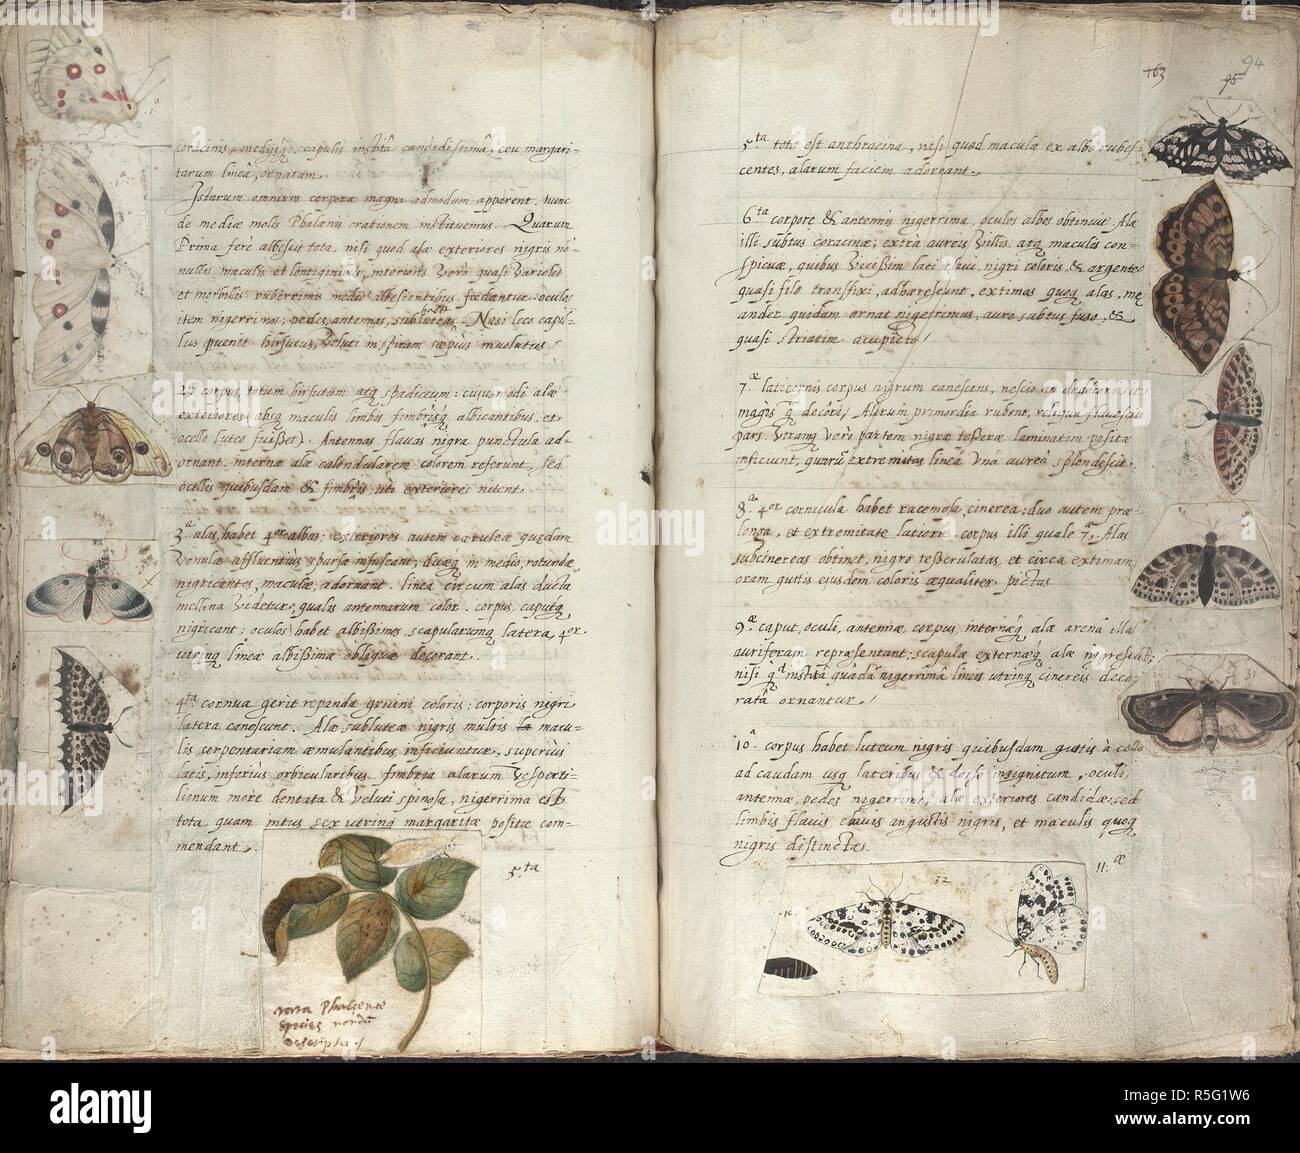 coracinis, medijsq̃ scapulis institâ candidissimâ, ceu margari-
tarum lineâ, ornatam.
Istarum omnium corpora magni admodum apparent. nunc
de mediæ molis Phalænis orationem instituemus. Quarum
Prima fere albescit tota, nisi quod alæ exteriores nigris nõ-
nullis maculis et lentiginibus, interioris vero quasi variolis
et morbillis ruberrimis medio albescentibus fœdantur. oculos
item nigerrimos; pedes, antennas, subluteas habet. Nasi loco capil-
lus prænit hirsutus, veluti in spiram sæpius involutus!
2ᵃ corpus totum hirsutum atq̃ spadiceum: cuiusmodi alæ
exteriores, absq̃ maculis limbis fimbrijsq̃ albicantibus, et
ocello luteo fuisset). Antennas flavas nigra punctula ad-
ornant. internæ alæ calendularem colorem referunt, sed
ocellis quibusdam & fimbrijs, uti exteriores nitent.
3ᵃ alas habet 4ᵒʳ albas: exteriores autem cæruleæ quædam
venulæ affluentius sparsæ infuscant; duæq̃ in medio, rotundæ
nigricantes, maculæ, adornant. linea circum alas ducta
mellina videtur, qualis antennarum color. corpus, caputq̃
nigricant: oculos habet albißimos. scapularumq̃ latera 4ᵒʳ
utrinq̃ lineæ albißimæ obliquæ decorant.
4ᵗᵃ cornua gerit repanda gruini coloris: corporis nigri
latera canescunt. Alæ subluteæ nigris multis macu-
lis serpenturiam æmulantibus inficiuntur, superius
latis, inferius orbicularibus. fimbria alarum Vesperti-
lionum more dentata & veluti spinosa, nigerrima est
tota, quam intus sex utrinq̃ margaritæ positæ com-
mendant.
5.ᵗᵃ
rara Phalænæ
species nondũ
descripta
94
163
95
5ᵗᵃ tota est anthracina, nisi quod maculæ ex albo rubes-
centes, alarum faciem adornant.
6.ᵗᵃ corpore & antennis nigerrima, oculos albos obtinuit. Alæ
illi subtus coracinæ; extra aureis villis, atq̃ maculis con-
spicuæ, quibus vicissim lati clavi, nigri coloris, & argenteo
quasi filo transfixi, adhærescunt. extimas quoq̃ alas, me
ander quidam ornat nigerrimus, auro subtus fuso, &
quasi striatim acupicto!
7.ᵃ laticornis corpus nigrum canescens, nescio an dedecorosũ
magis q̃ decorũ. Alarum primordia rubent, reliqua flavescit
pars. Utramq̃ vero partem nigræ tesseræ laminatim positæ
inficiunt, quarũ extremitas lineâ unâ aureâ splendescit.
8.ᵃ 4ᵒʳ cornicula habet racemosa, cinerea: duo autem præ-
longa, et extremitate latiora. corpus illo quale 7ᵃ. Alas
subcinereas obtinet, nigro tesserulatas, et circa extimam
oram guttis eiusdem coloris æqualiter pictas.
9.ᵃ caput, oculi, antennæ, corpus internæq̃ alæ arenã illã
auriferam repræsentant: scapulæ externæq̃ alæ nigrescũt;
nisi q̃d institâ quâdã nigerrimâ lineis utrinq̃ cinereis deco-
ratâ ornantur!
10.ᵃ corpus habet luteum nigris quibusdam guttis à collo
ad caudam usq̃ lateribus & dorso insignitum. oculi,
antennæ, pedes nigerrimi; alæ exteriores candidæ: sed
limbis flavis, clavis angustis nigris, et maculis quoq̃
nigris distinctæ.
11.ᵃ
32
31
alamy
alamy
Image ID: R5G1W6
www.alamy.com